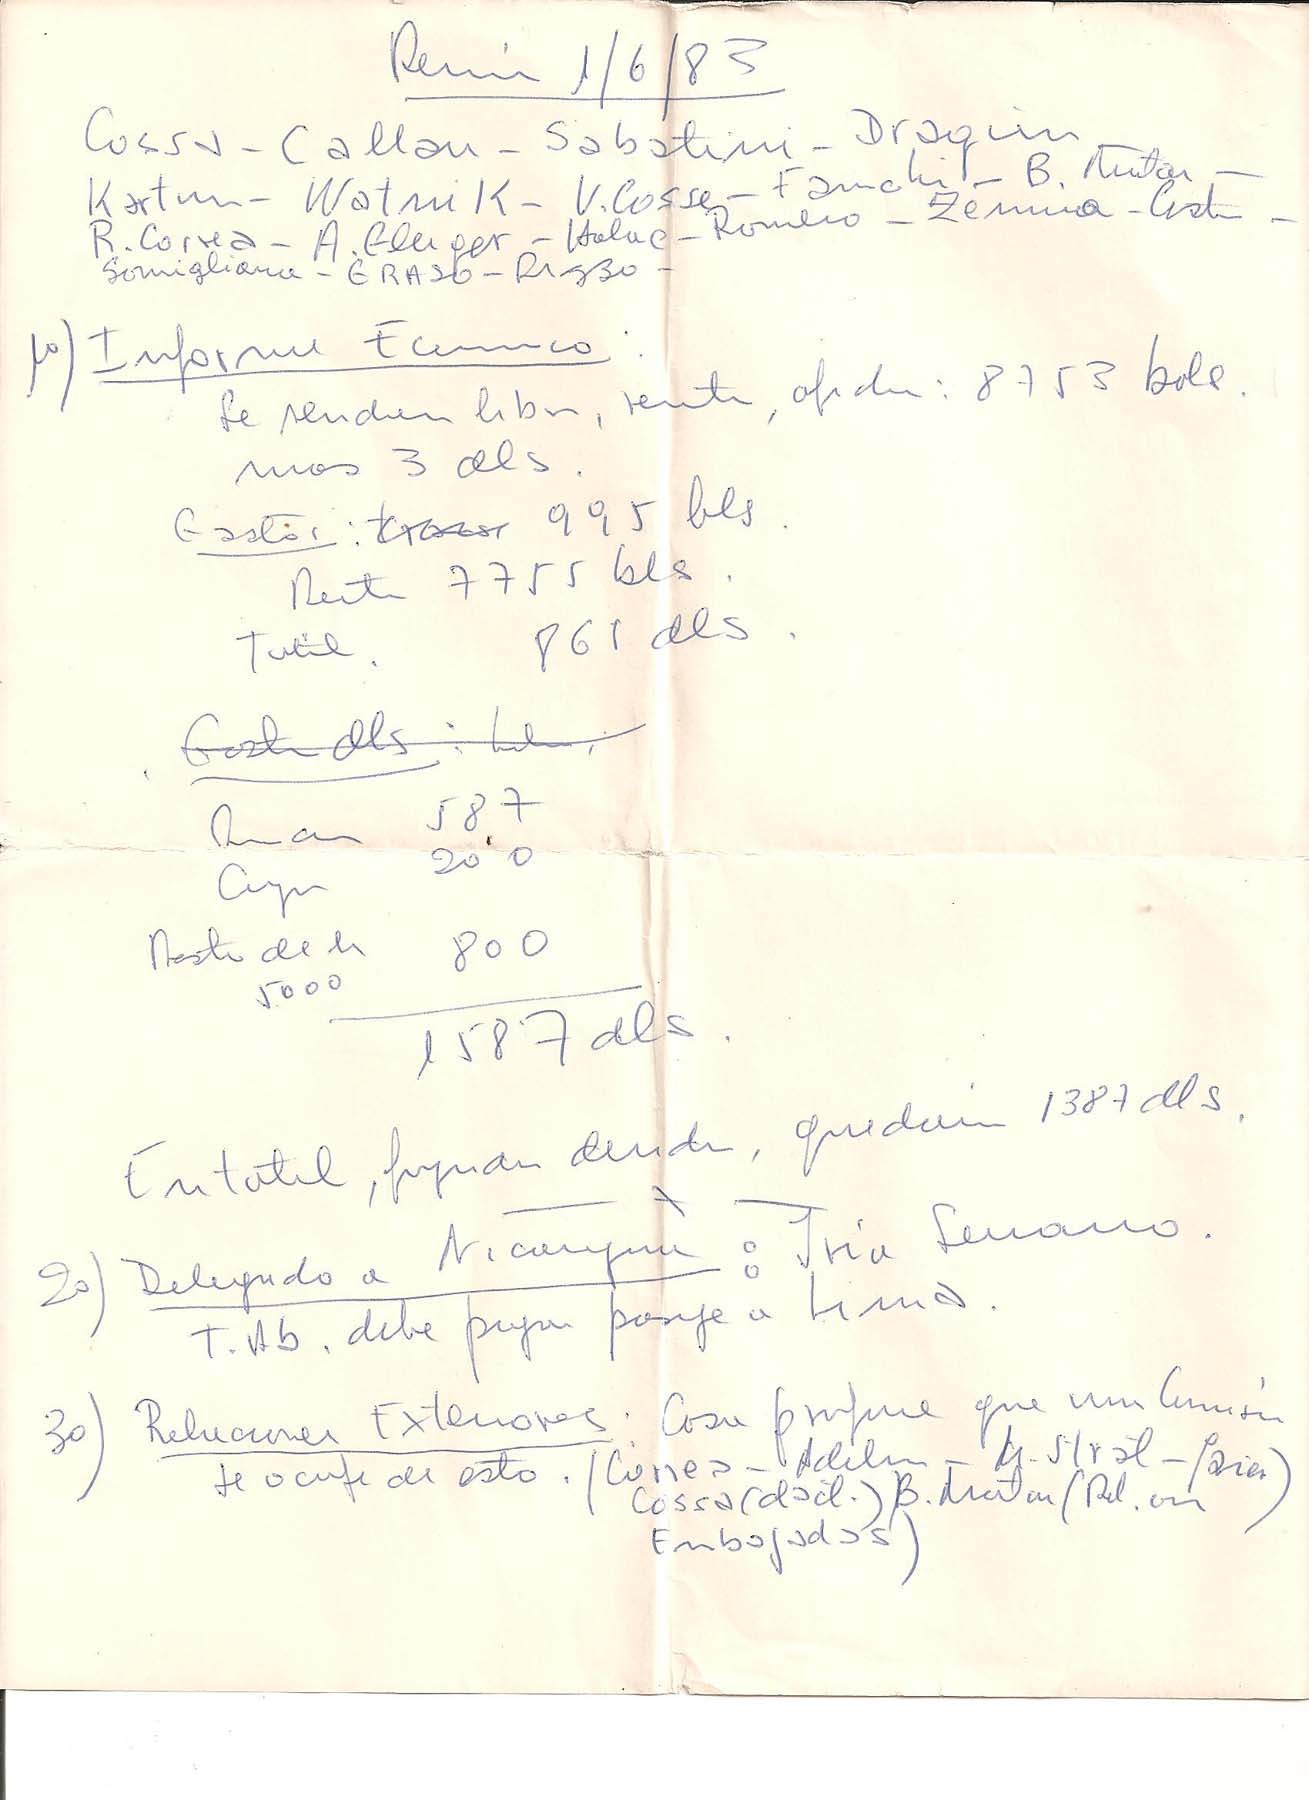 Reunión 1/6/83
Cossa - Callau - Sabatini - Dragún
Kartun - Watnik - V. Cosse - Fanchi - B. Matar -
R. Correa - A. Elenger - Halac - Romero - Zemma - Costa -
Somigliana - ERASO - Rizzo -
1º) Informe Económico:
Se venden libros, revista, afiches: 8753 bols.
mas 3 dls.
Gastos: 995 bls.
Resta 7755 bls.
Total. 861 dls.
Gasta dls:
587
200
Resto de los 800
5000
1587 dls.
En total, pagando deudas, quedarían 1387 dls.
2º) Delegado a Nicaragua: Tría Serrano.
T. Ab. debe pagar pasaje a Lima.
3º) Relaciones Exteriores: Cossa propone que una Comisión
se ocupe de esto. (Correa - Adelin - M. Stral -
Cossa (dact.) B. Matar (Rel. con
Embajadas)